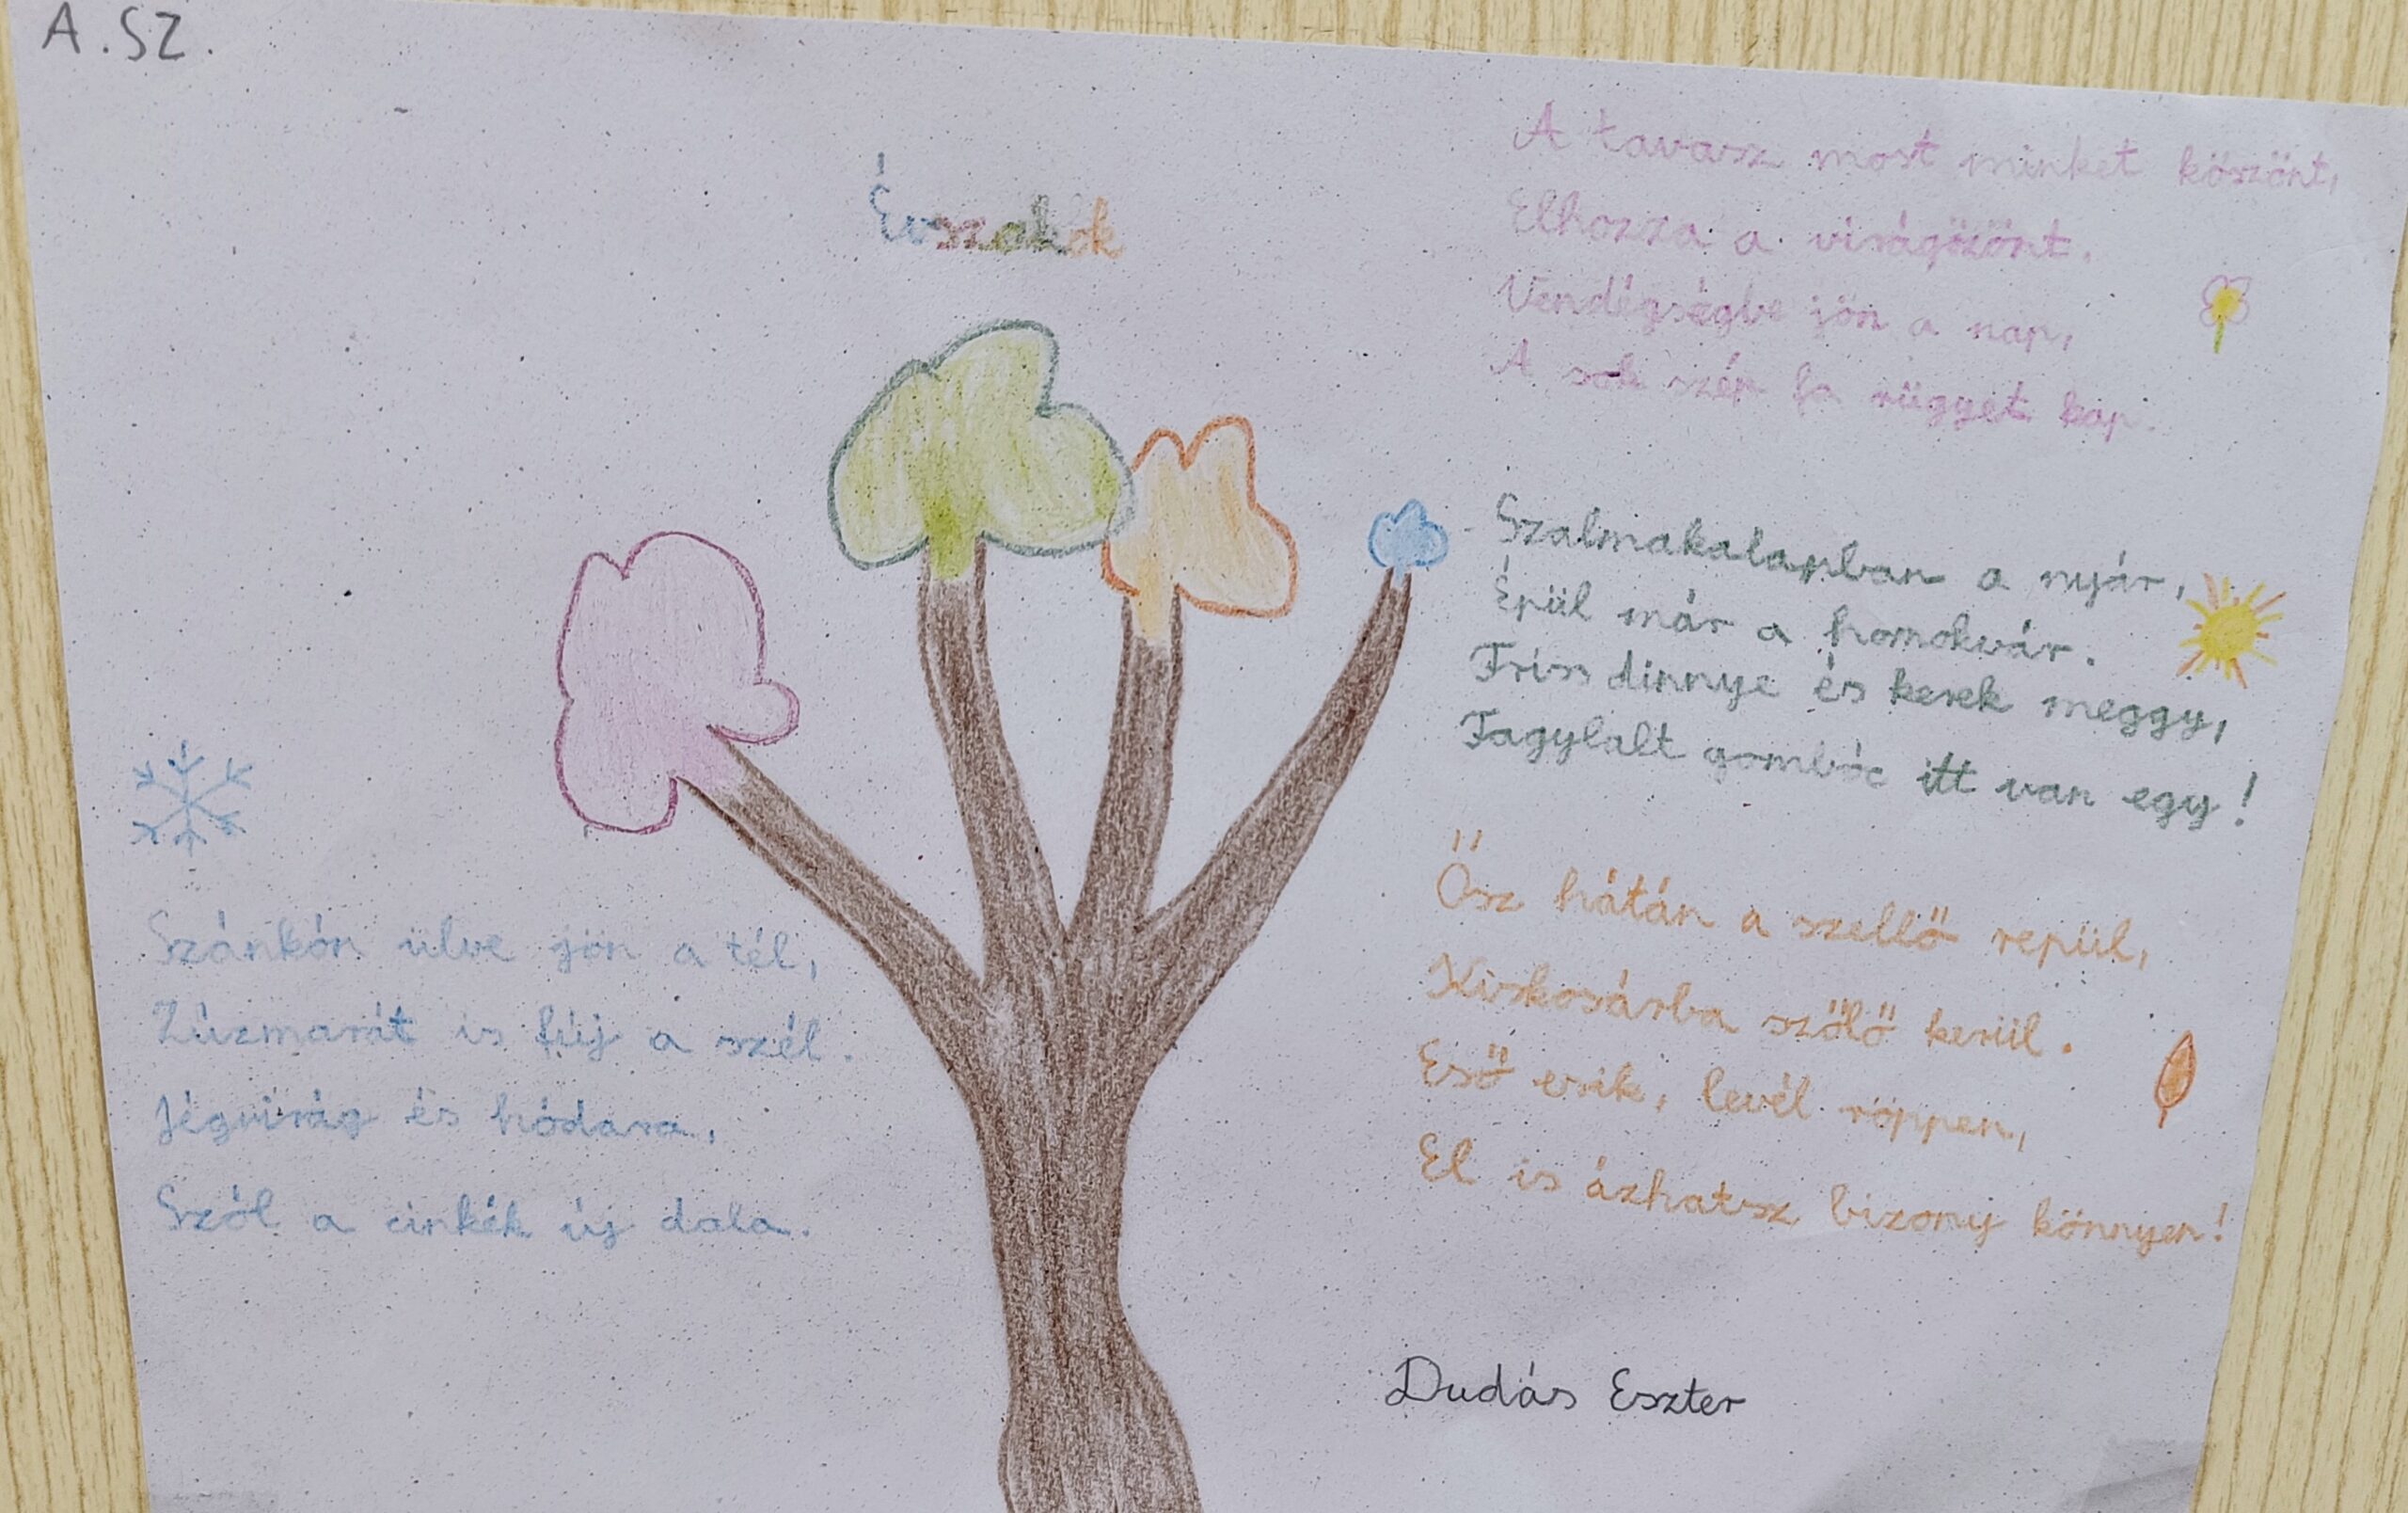 A.SZ.
Évszakok
A tavasz most minket köszönt,
Elhozza a virágözönt.
Vendégségbe jön a nap,
A sok szép fa rügyet kap.
Szalmakalapban a nyár,
Épül már a homokvár.
Friss dinnye és kerek meggy,
Fagylalt gombóc itt van egy!
Ősz hátán a szellő repül,
Kiskosárba szőlő kerül.
Eső esik, levél röppen,
El is ázhatsz bizony könnyen!
Szánkón ülve jön a tél,
Zúzmarát is fúj a szél.
Jégvirág és hódara,
Szól a cinkék új dala.
Dudás Eszter